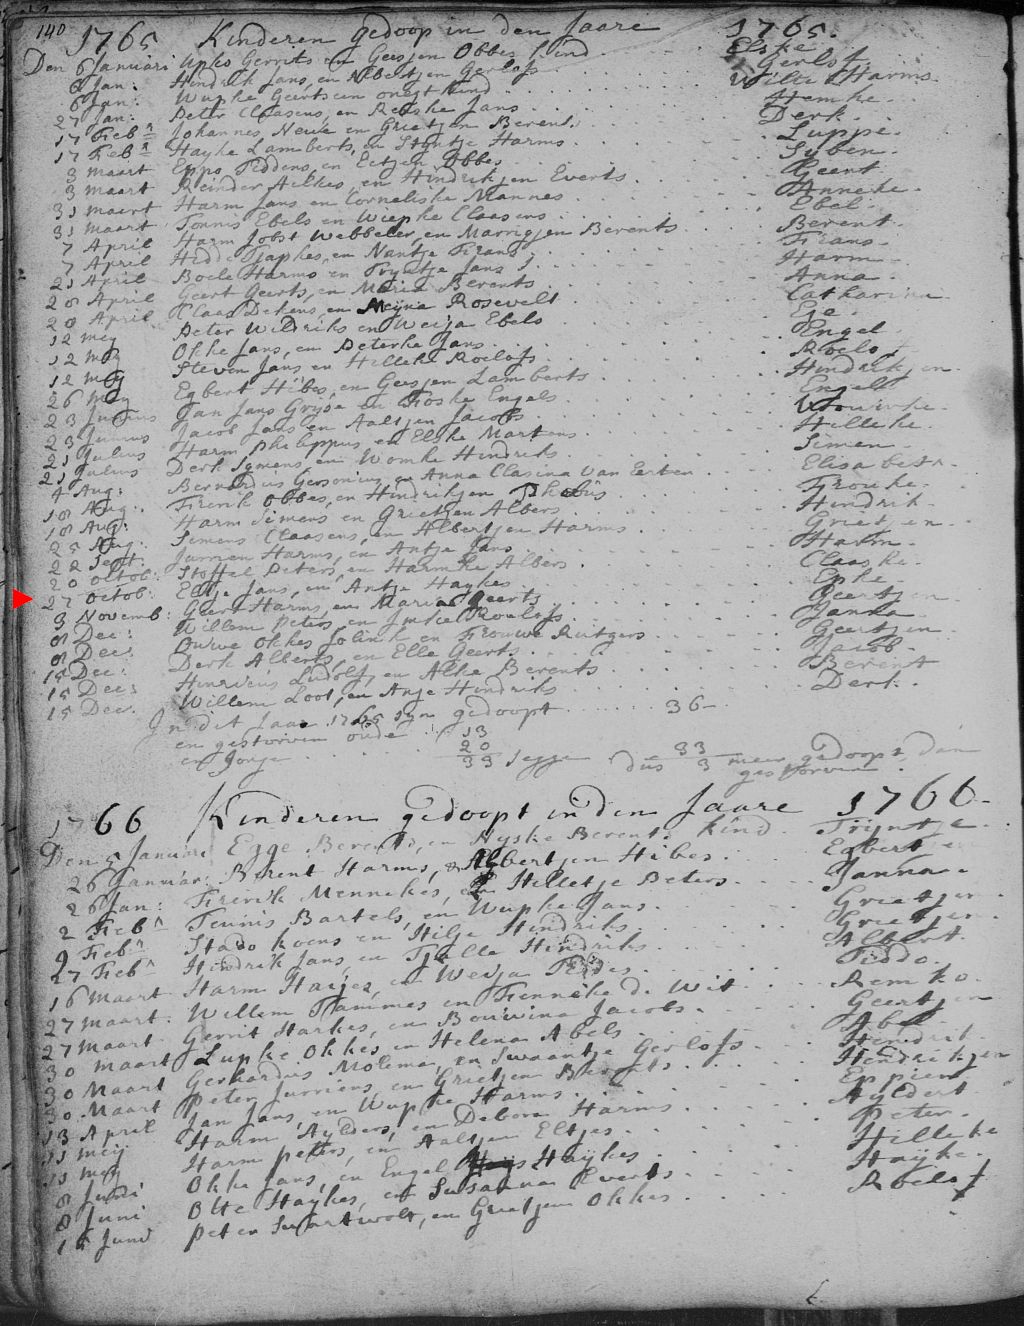 140
1765 Kinderen gedoop in den Jaare 1765.
Den 6 Januari Apko Gerrits en Geesjen Obbes kind Elske
6 Jan: Hindrik Jans, en Albertjen Gerlofs Gerlof.
6 Jan: Wupke Geerts een onegt kind Wilte Harms
27 Jan: Peter Claasens, en Renske Jans Hemke.
17 Feb Johannes Neue en Grietjen Berent. Derk.
17 Feb Hayke Lamberts, en Stintje Harms Luppe.
3 maart Eppo Teddens, en Eetjen Obbes Siben.
3 maart Reinder Ailkes, en Hindrikjen Everts Geert
31 maert Harm Jans en Corneliske Mannes Anneke.
31 maart Tonnis Ebels en Wupke Claasens Ebel.
7 April Harm Jobst Webbeler, en Marrigjen Berents Berent.
7 April Hidde Tjapkes, en Nantje Frans Frans
21 April Boele Harms en Tryntje Jans Harm
28 April Geert Geerts, en Maria Berents Anna
28 April Claas Derens, en Meyna Rosevelt Catharina
12 mey Peter Wildriks en Weija Ebels Eje.
12 mey Okke Jans, en Peterke Jans Engel
12 mey Steven Jans en Hilleke Roelofs Roelof
26 mey Egbert Hibes, en Geesjen Lamberts Hindrikjen.
23 Junius Jan Jans Gryse en Foske Engels Engel
23 Junius Jacob Jans en Aaltjen Jacobs Vrouwke.
21 Julius Harm Philippus en Elske Martens Hilleke.
21 Julius Derk Symens, en Womke Hindriks Simen
4 Aug: Bernardus Gersonius, en Anna Clasina Van Eerten Elisabeth.
18 Aug: Frerik Obbes, en Hindrikjen Frouke.
18 Aug: Harm Simens, en Grietjen Albers Hindrik
25 Aug. Simens Claasens, en Albertjen Harms Grietjen.
22 Sept. Jurrien Harms, en Antje Jans Harm
20 octob: Stoffel Peters, en Harmke Albers Claaske.
27 octob: Eltje Jans, en Antje Haykes Epke
3 Novemb: Geert Harms, en Maria Geerts Geertjen
8 Dec: Willem Peters, en Roelofs Janna
8 Dec: Okkes Jolink en Frouwe Rutgers Geertjen
15 Dec: Derk Alberts, en Elle Geerts Jacob.
15 Dec: Hinricus Ludolfs, en Alke Berents Berent
15 Dec. Willem Loot, en Anje Hindriks Derk.
In dit Jaar 1765 syn gedoopt 36
en gestorven oude 13
en Jonge 20
33 segge dus 33 / 3 meer gedoopt, dan gestorven
1766 Kinderen gedoopt in den Jaare 1766.
Den 5 Januari Egge Berents, en Hyske Berents kind Tryntje
26 Januari: Berent Harms, & Albertjen Hibes Egbert
26 Jan: Frerik Mennekes, en Hilletje Peters Janna.
2 Feb Teunis Bartels, en Wupke Jans Grietjen
9 Feb Stado Koens en Hilje Hindriks Grietjen.
27 Feb Hindrik Jans en Tjalle Hindriks Albert.
16 maart Harm Haijes, en Weija Fiddes Fiddo.
27 maart. Willem Tammes en Fenneke de Wit Remko.
27 maart Gerrit Harkes, en Bouwina Jacobs. Geertjen
30 maart Lupke Okkes en Helena Abels Abel
30 maart Gerhardus Molema, en Swaantje Gerlofs Hendrik
30 maart Peter Jurriens, en Grietjen Berents Hendrikjen
13 April Jan Jans, en Wupke Harms Eppien
11 meij Harm Aylders, en Debora Harms Ayldert
11 meij Harm peters, en Aaltjen Eltjes Peter.
8 Juni Okke Jans, en Engel Haykes Hilleke
8 Juni Olte Haykes, en Susanna Everts Hayke.
15 Juni Peter Swartwolt, en Grietjen Okkes Roelof